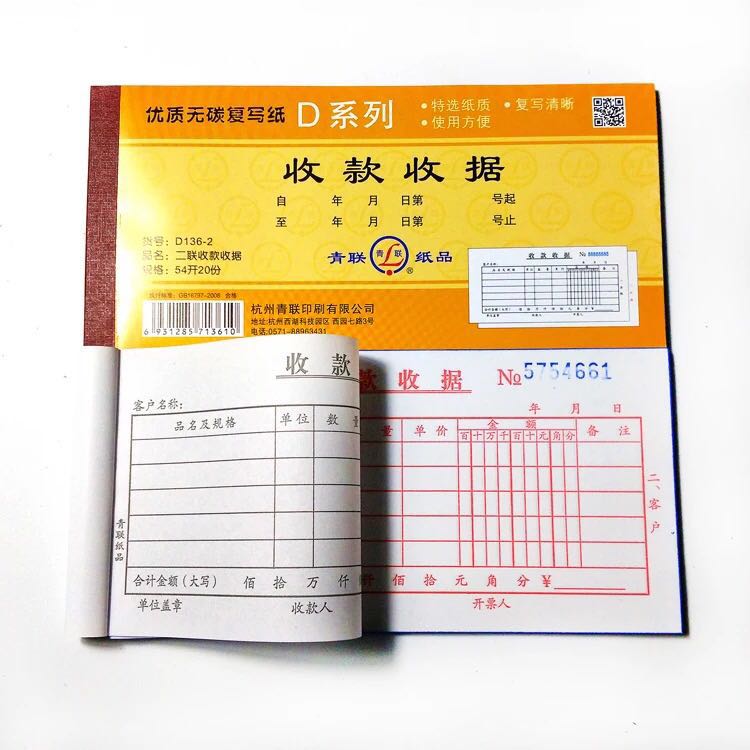 优质无碳复写纸 D系列
·特选纸质 ·复写清晰
·使用方便
收款收据
自 年 月 日第 号起
至 年 月 日第 号止
货号:D136-2
品名:二联收款收据
规格:54开20份
青联 青联 纸品
®
执行标准:GB16797-2008 合格
6 931285 713610
杭州青联印刷有限公司
地址:杭州西湖科技园区 西园七路3号
电话:0571-88963431
收款收据 №88888888
收款
客户名称:
品名及规格 单位 数量
合计金额(大写) 佰 拾 万 仟
单位盖章 收款人
青联纸品
款收据 №5754661
年 月 日
量 单价 金额 备注
百十万千百十元角分
仟 佰 拾 元 角 分 ¥
开票人
二、客户